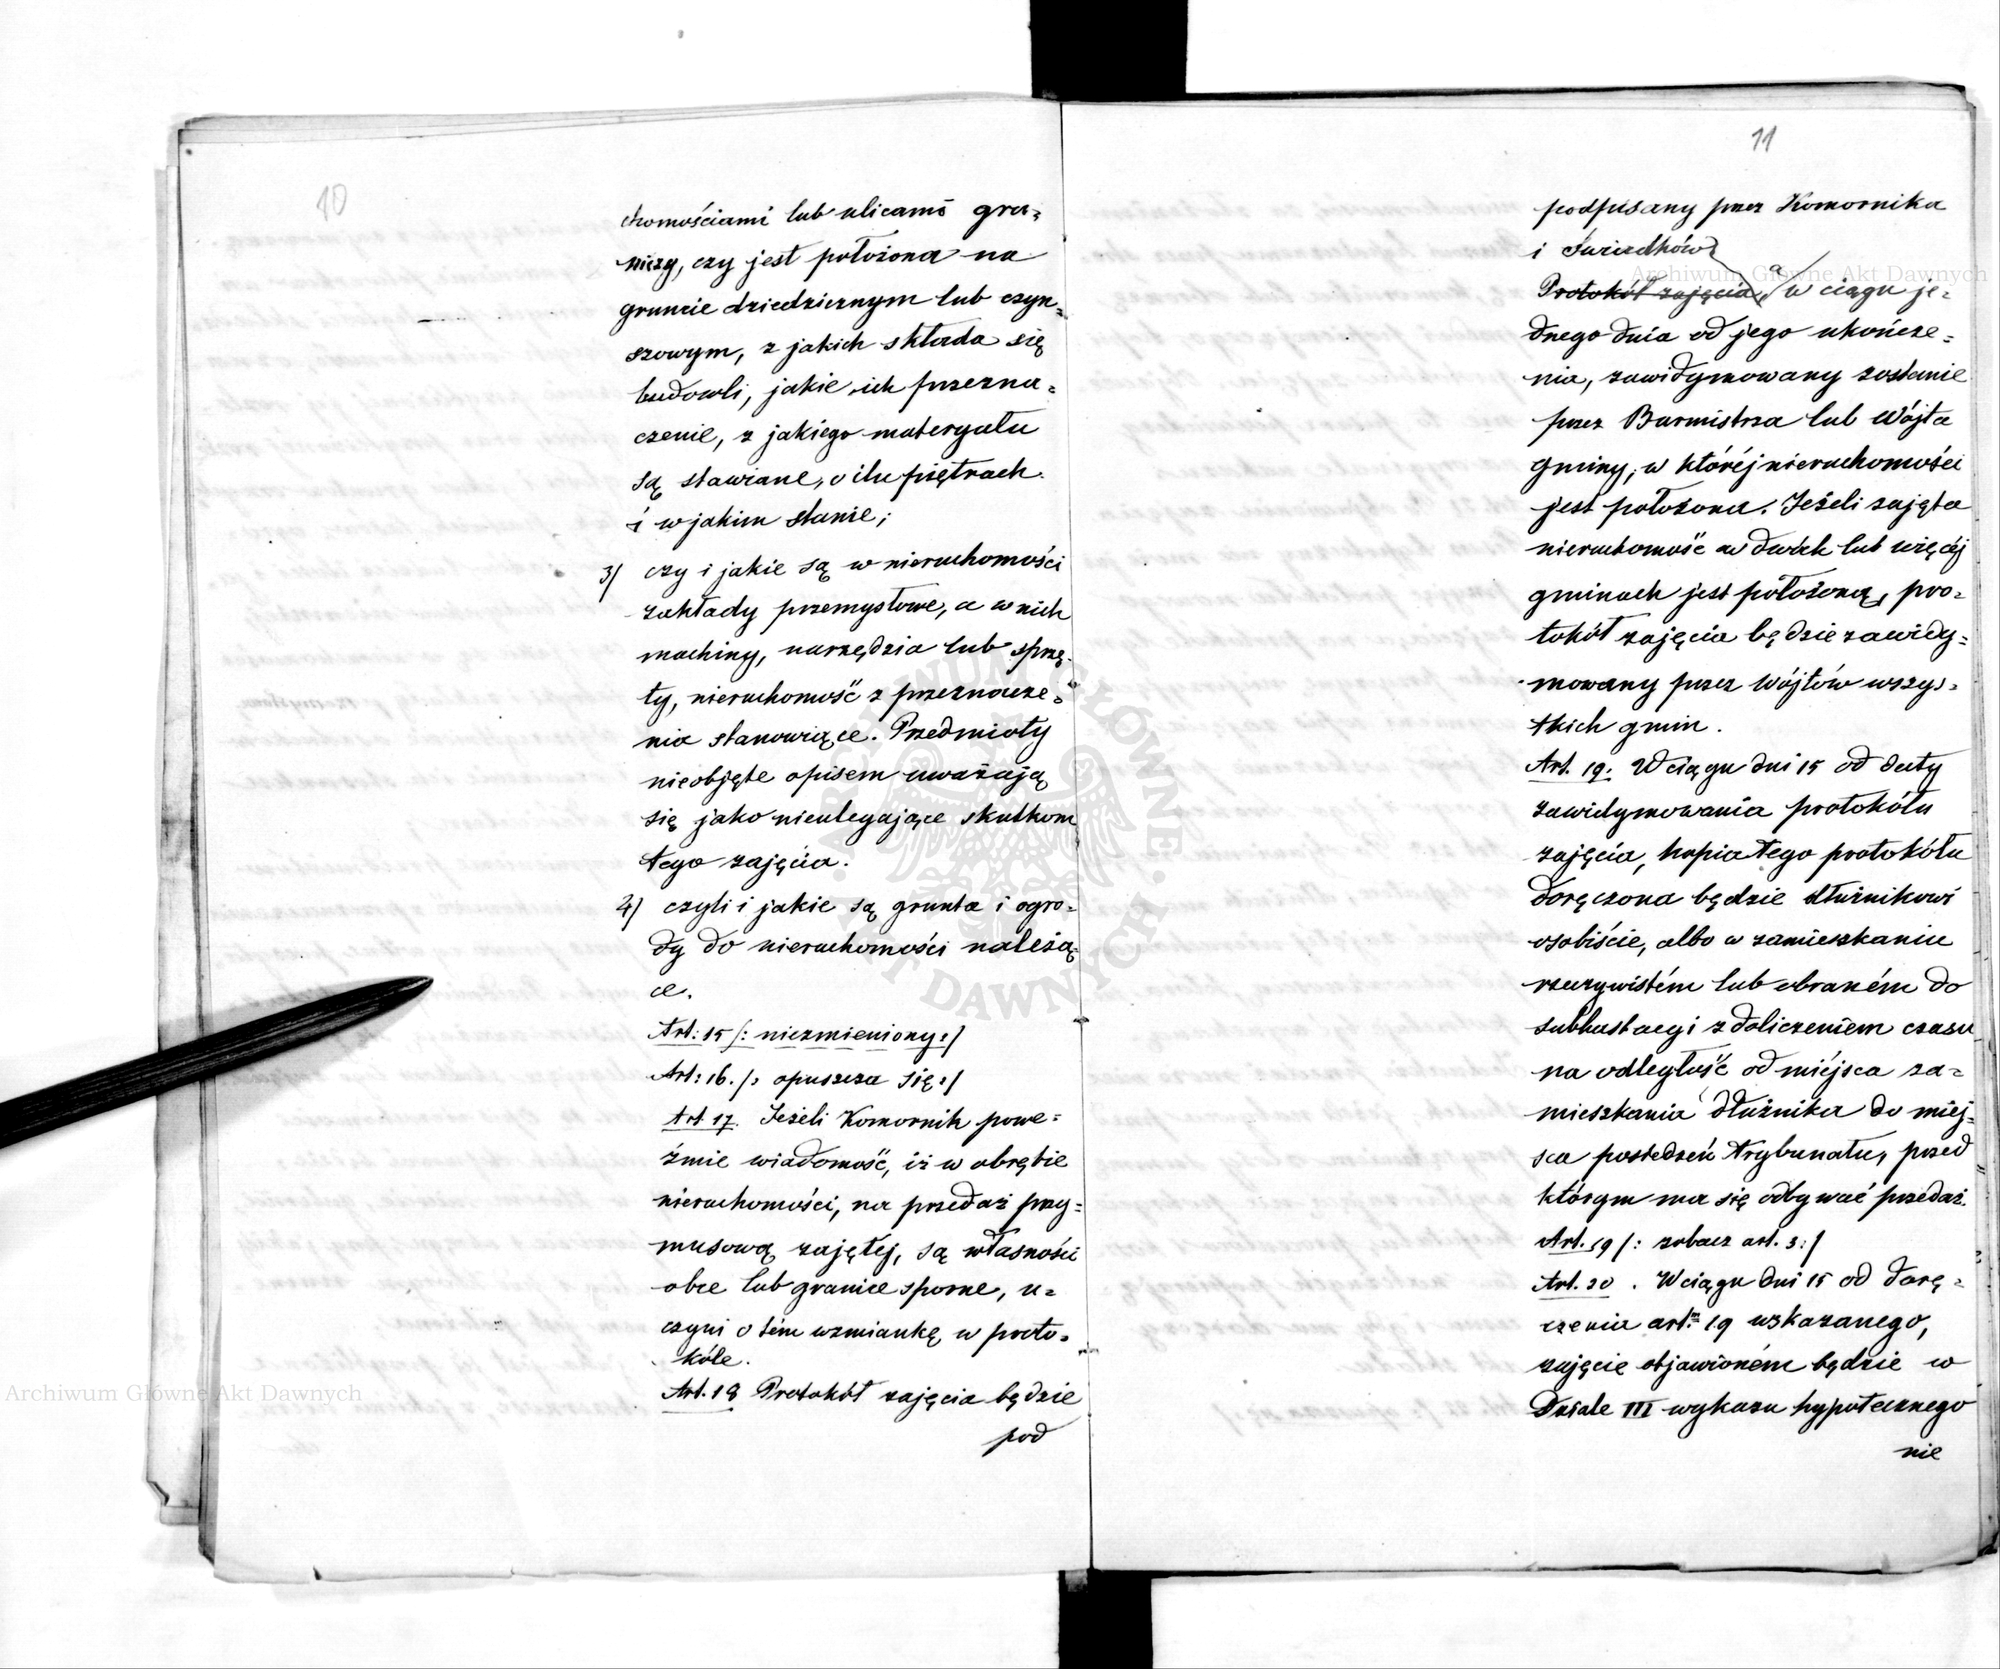 10
chomościami lub ulicami gra=
niczy, czy jest położona na
gruncie dziedzicznym lub czyn=
szowym, z jakich składa się
budowli, jakie ich przezna=
czenie, z jakiego materyału
są stawiane, o ilu piętrach
i w jakim stanie;
3/ czy i jakie są w nieruchomości
zakłady przemysłowe, a w nich
machiny, narzędzia lub sprzę-
ty, nieruchomość z przeznacze=
nia stanowiące. Przedmioty
nieobjęte opisem uważają
się jako nieulegające skutkom
tego zajęcia.
4/ czyli i jakie są grunta i ogro=
dy do nieruchomości należą=
ce.
Art: 15 /: niezmieniony :/
Art: 16. /: opuszcza się :/
Art 17. Jeżeli Komornik powe=
źmie wiadomość, iż w obrębie
nieruchomości, na przedaż przy=
musową zajętej, są własności
obce lub granice sporne, u=
czyni o tém wzmiankę w proto=
kóle.
Art. 18 Protokół zajęcia będzie
pod
11
podpisany przez Komornika
i świadków
Protokół zajęcia, a w ciągu je=
dnego dnia od jego ukończe=
nia, zawidymowany zostanie
przez Burmistrza lub Wójta
gminy, w któréj nieruchomości
jest położona. Jeżeli zajęta
nieruchomość w dwóch lub więcéj
gminach jest położoną, pro=
tokół zajęcia będzie zawidy=
mowany przez Wójtów wszys=
tkich gmin.
Art. 19. W ciągu dni 15 od daty
zawidymowania protokółu
zajęcia, kopia tego protokółu
doręczona będzie dłużnikowi
osobiście, albo w zamieszkaniu
rzeczywistém lub obraném do
subhastacyi z doliczeniem czasu
na odległość od miéjsca za=
mieszkania dłużnika do miej=
sca posiedzeń Trybunału, przed
którym ma się odbywać przedaż.
Art. 19 /: zobacz art. 3 :/
Art. 20. W ciągu dni 15 od dorę=
czenia art.m 19 wskazanego,
zajęcie objawioném będzie w
Dziale III wykazu hypotecznego
nie
Archiwum Główne Akt Dawnych
Archiwum Główne Akt Dawnych
ARCHIWUM GŁÓWNE AKT DAWNYCH